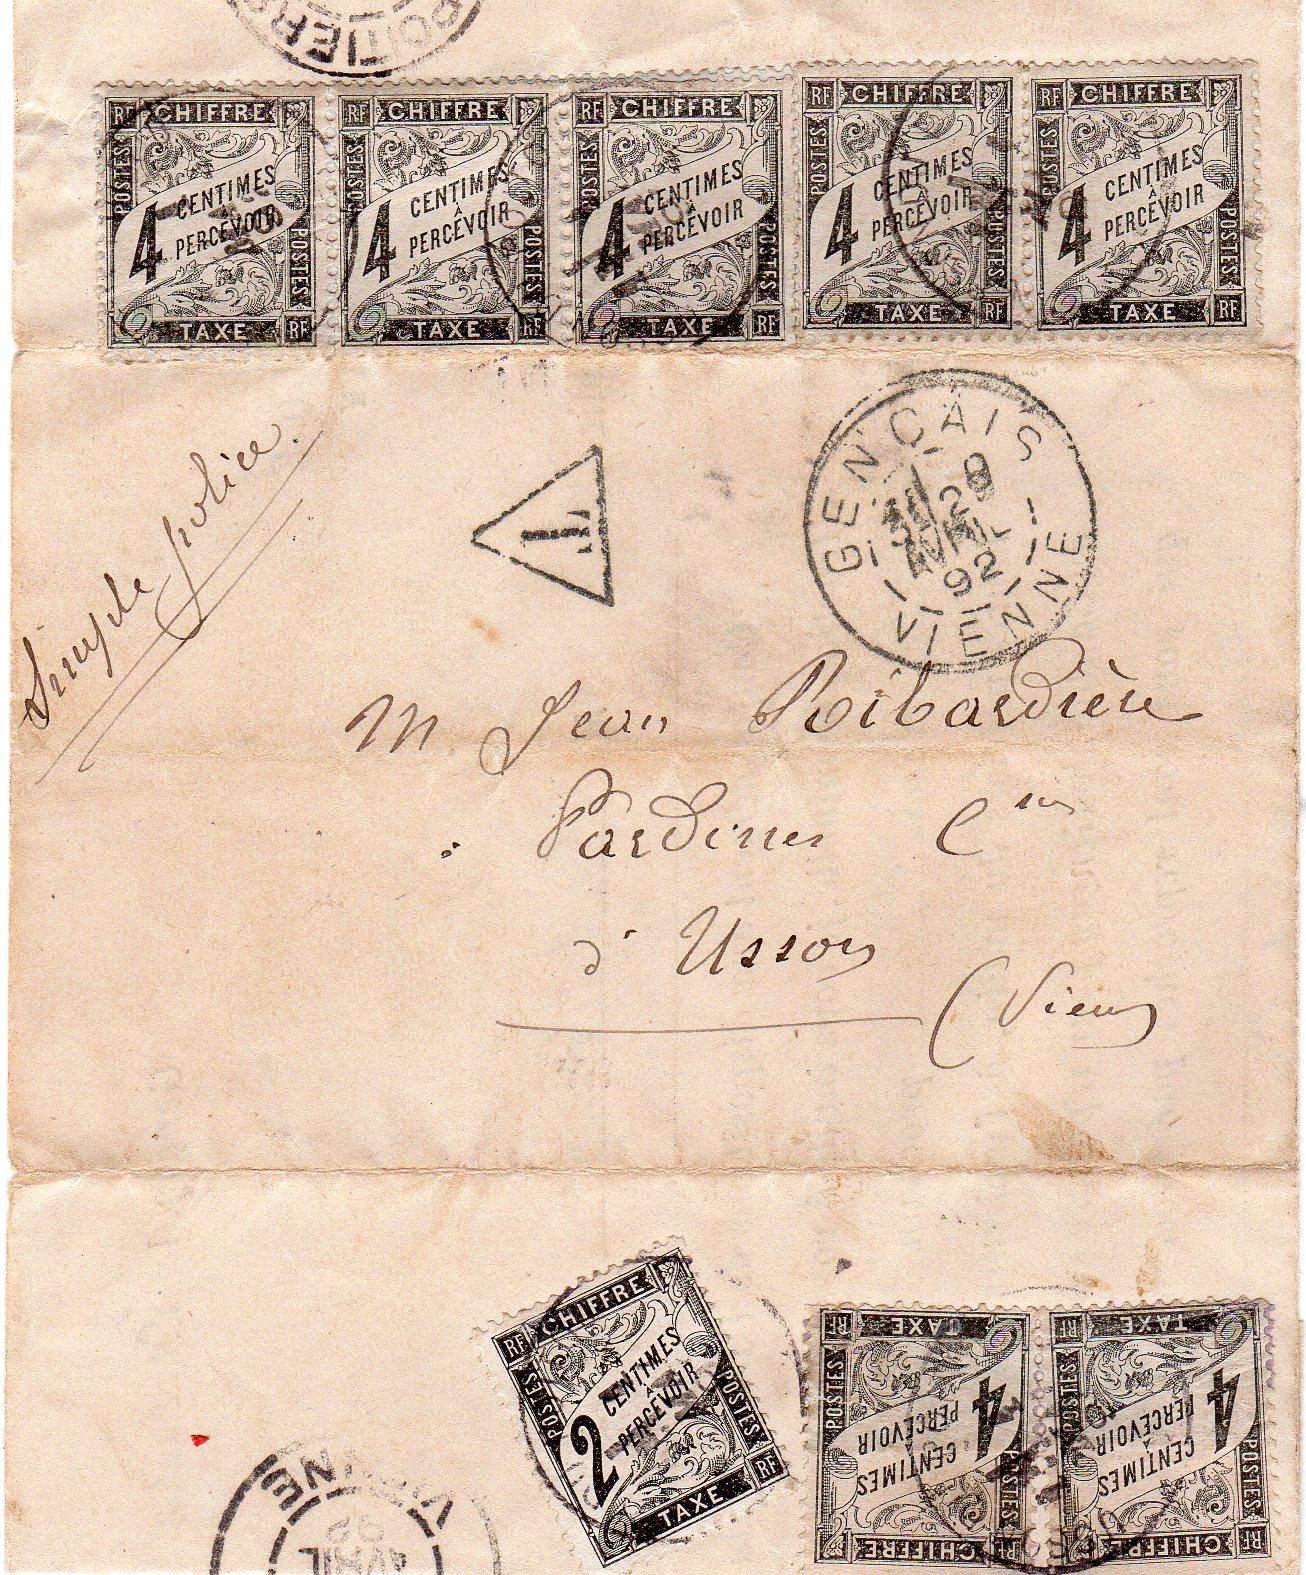 POITIERS
RF CHIFFRE RF CHIFFRE RF CHIFFRE RF CHIFFRE RF CHIFFRE
POSTES 4 CENTIMES À PERCEVOIR POSTES
POSTES 4 CENTIMES À PERCEVOIR POSTES
POSTES 4 CENTIMES À PERCEVOIR POSTES
POSTES 4 CENTIMES À PERCEVOIR POSTES
POSTES 4 CENTIMES À PERCEVOIR POSTES
TAXE RF TAXE RF TAXE RF TAXE RF TAXE RF
GENÇAIS
28
AVRIL
92
VIENNE
T
Simple police.
M Jean Ribardière
à Pardines Cne
d'Usson
(Vienne)
RF CHIFFRE
POSTES 2 CENTIMES À PERCEVOIR POSTES
TAXE RF
RF CHIFFRE
POSTES 4 CENTIMES À PERCEVOIR POSTES
TAXE RF
RF CHIFFRE
POSTES 4 CENTIMES À PERCEVOIR POSTES
TAXE RF
VIENNE
AVRIL